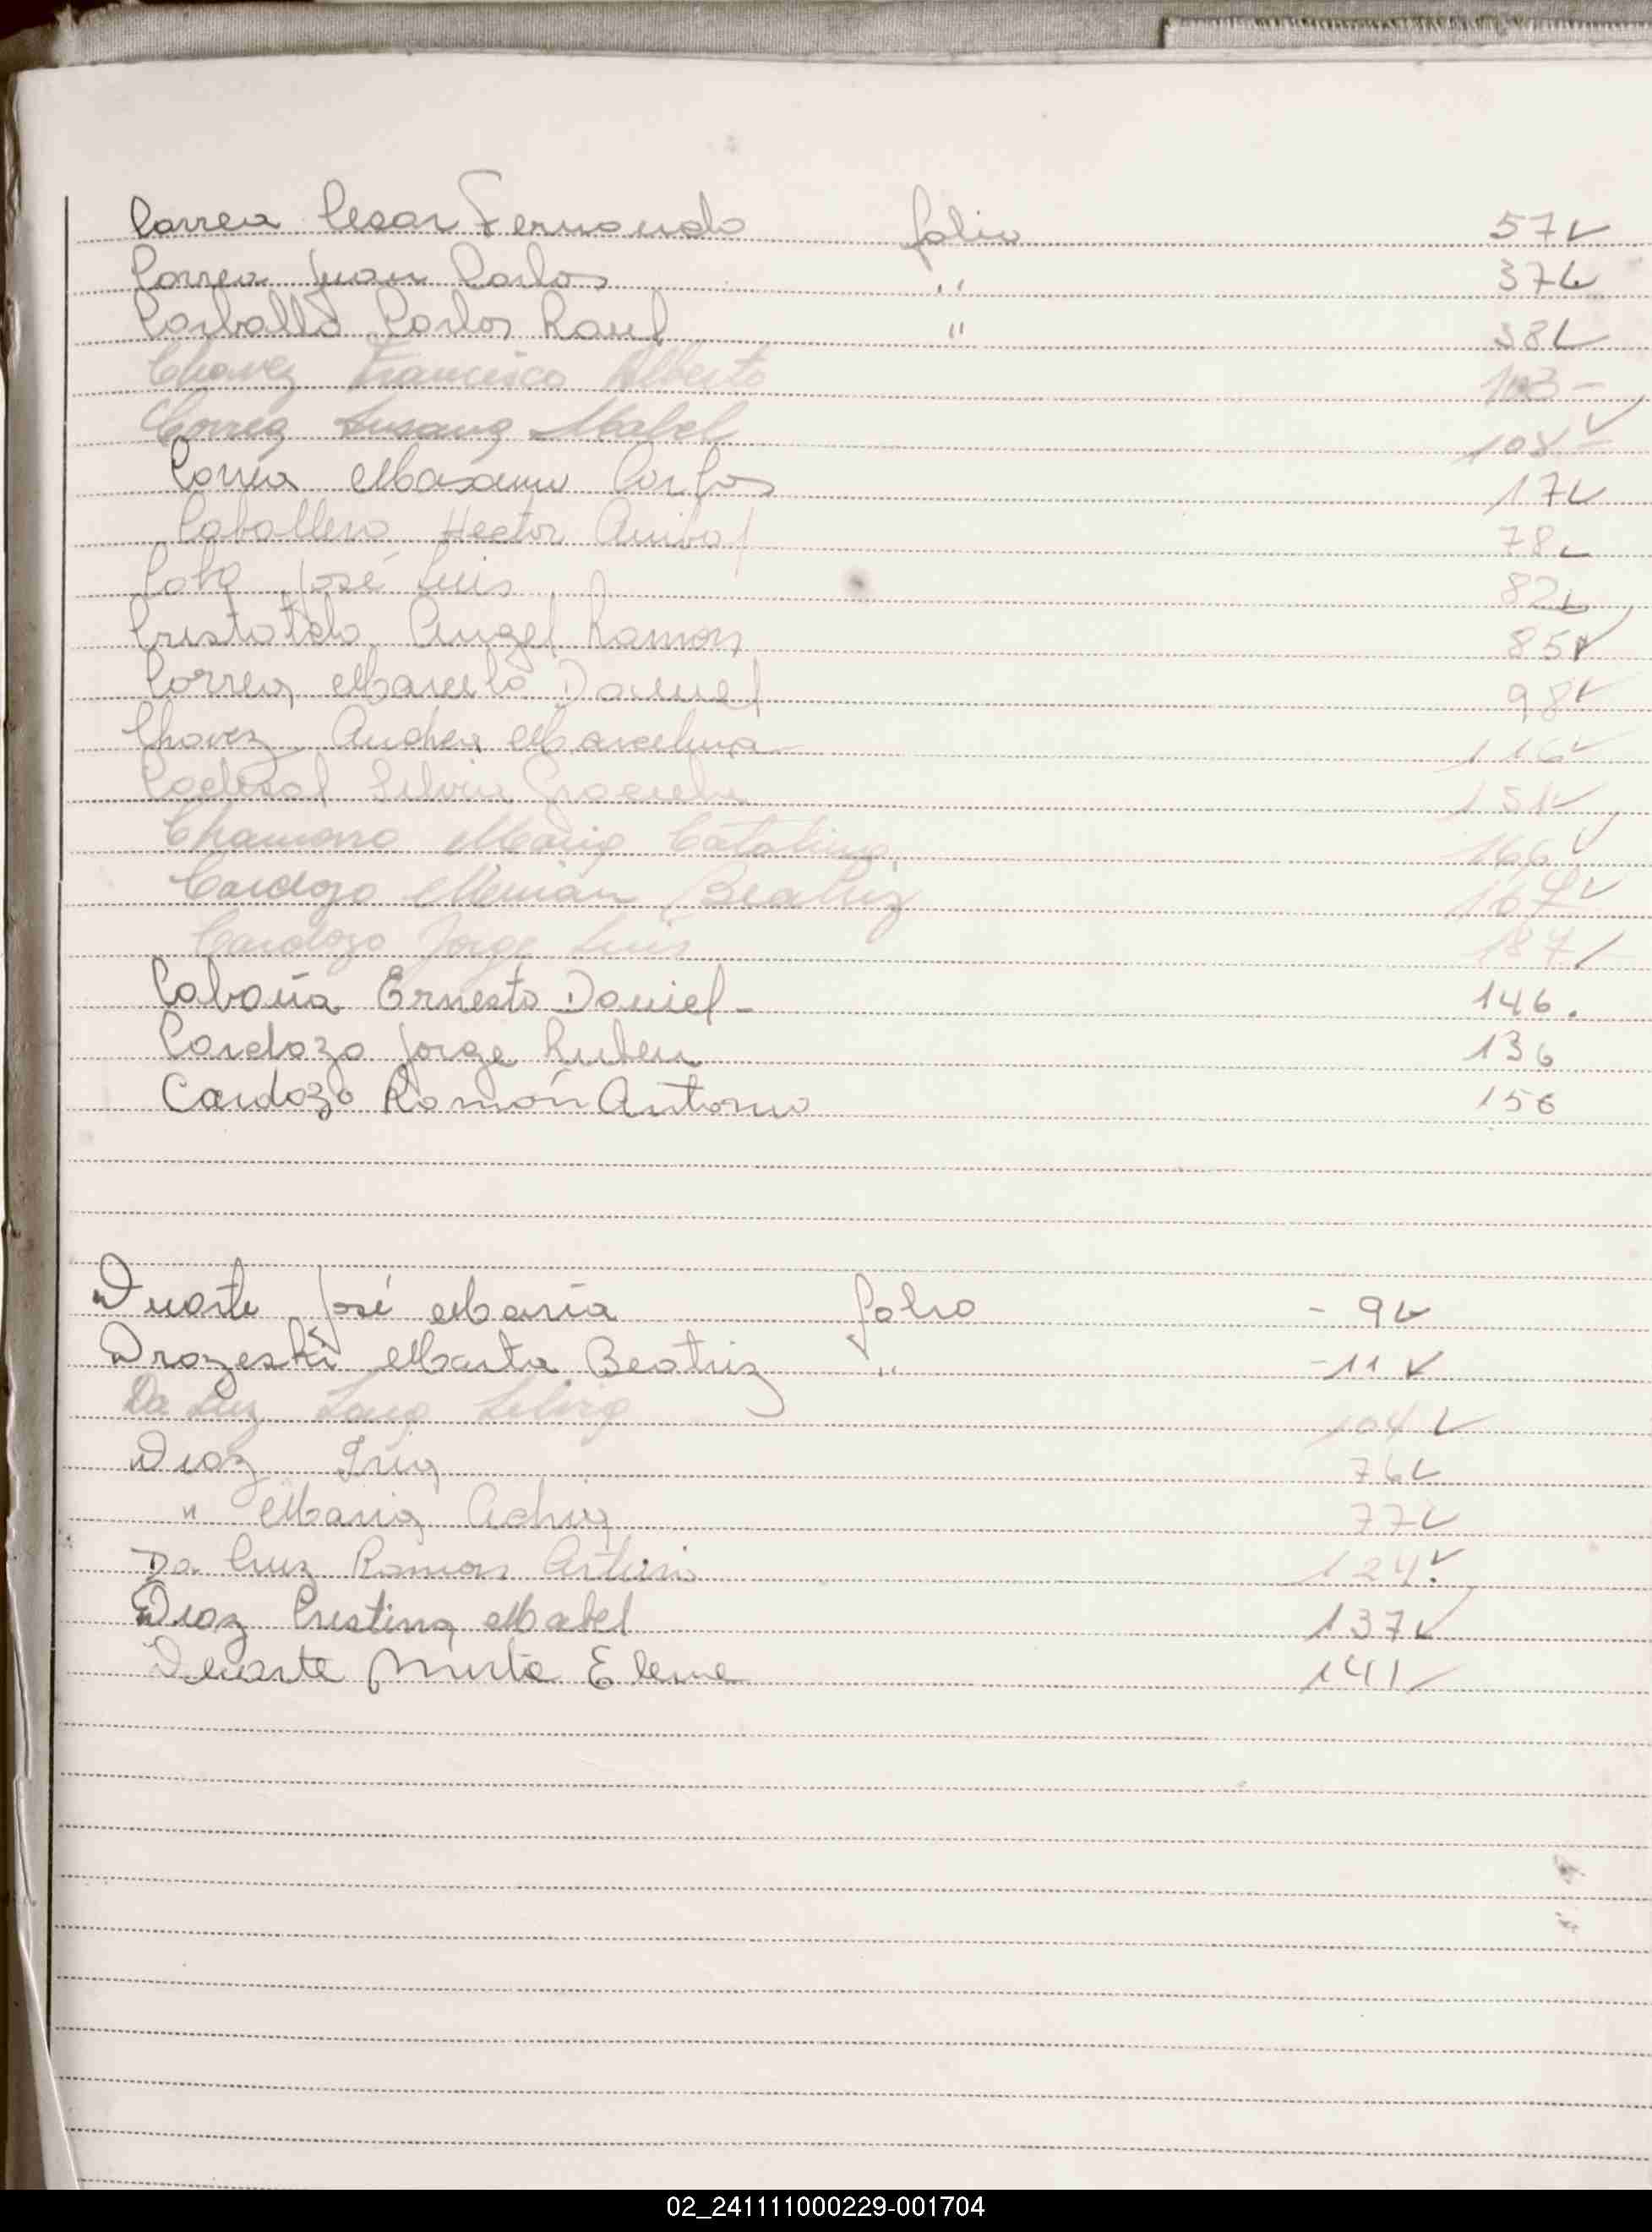 Correa Cesar Fernando folio 57 ✓
Correa Juan Carlos " 37 ✓
Carballo Carlos Raul " 38 ✓
Chavez Francisco Alberto 103 -
Correa Susana Mabel 108 ✓
Correa Maximo Carlos 17 ✓
Caballero Hector Anibal 78 ✓
José Luis 82 ✓
Cristaldo Angel Ramon 85 ✓
Correa Marcelo Daniel 98 ✓
Chavez Andrea Marcelina 116 ✓
Silvia Graciela 151 ✓
Chamorro Maria Catalina 166 ✓
Cardozo Mirian Beatriz 167 ✓
Cardozo Jorge Luis 187 ✓
Cabaña Ernesto Daniel - 146.
Cardozo Jorge Ruben 136
Cardozo Ramón Antonio 156
Duarte José María folio - 9 ✓
Drozeski Marta Beatriz " - 11 ✓
Da Luz 104 ✓
Diaz 76 ✓
" Maria 77 ✓
Da Cruz Ramon Arturo 124 ✓
Diaz Cristina Mabel 137 ✓
Duarte Mirta Elena 141 ✓
02_241111000229-001704